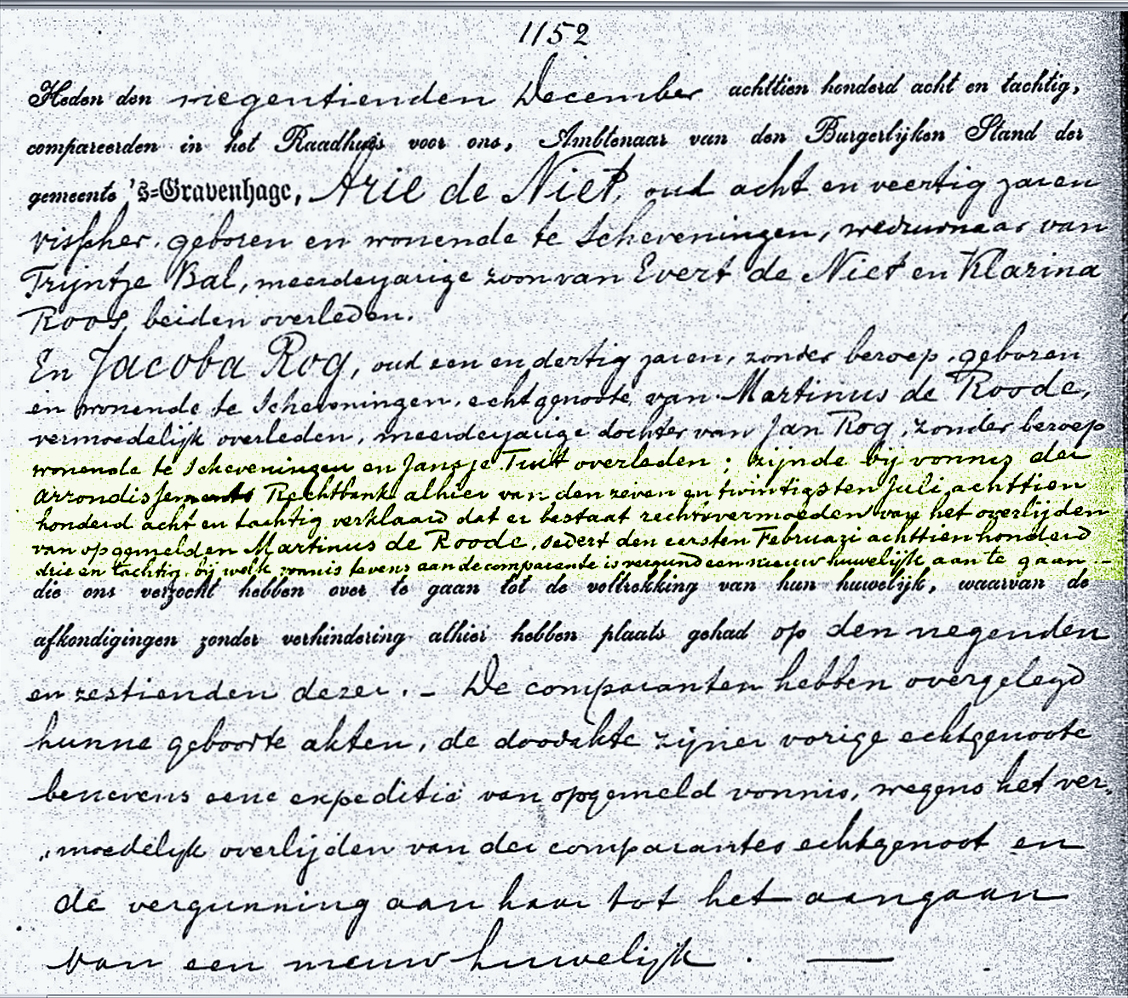 1152
Heden den negentienden December achttien honderd acht en tachtig,
compareerden in het Raadhuis voor ons, Ambtenaar van den Burgerlijken Stand der
gemeente 's-Gravenhage, Arie de Niet, oud acht en veertig jaren
visscher, geboren en wonende te Scheveningen, weduwnaar van
Trijntje Bal, meerderjarige zoon van Evert de Niet en Klazina
Roos, beiden overleden.
En Jacoba Rog, oud een en dertig jaren, zonder beroep, geboren
en wonende te Scheveningen, echtgenoote van Martinus de Roode,
vermoedelijk overleden, meerderjarige dochter van Jan Rog, zonder beroep
wonende te Scheveningen en Jansje Tuit overleden; zijnde bij vonnis der
Arrondissements Rechtbank alhier van den zeven en twintigsten Juli achttien
honderd acht en tachtig verklaard dat er bestaat rechtsvermoeden van het overlijden
van opgemelden Martinus de Roode, sedert den eersten Februari achttienhonderd
drie en tachtig, bij welk vonnis tevens aan de comparante is vergund een nieuw huwelijk aan te gaan –
die ons verzocht hebben over te gaan tot de voltrekking van hun huwelijk, waarvan de
afkondigingen zonder verhindering alhier hebben plaats gehad op den negenden
en zestienden dezer. – De comparanten hebben overgelegd
hunne geboorte akten, de doodakte zijner vorige echtgenoote
benevens eene expeditie van opgemeld vonnis, wegens het ver-
„moedelijk overlijden van der comparantes echtgenoot en
de vergunning aan haar tot het aangaan
van een nieuw huwelijk. —